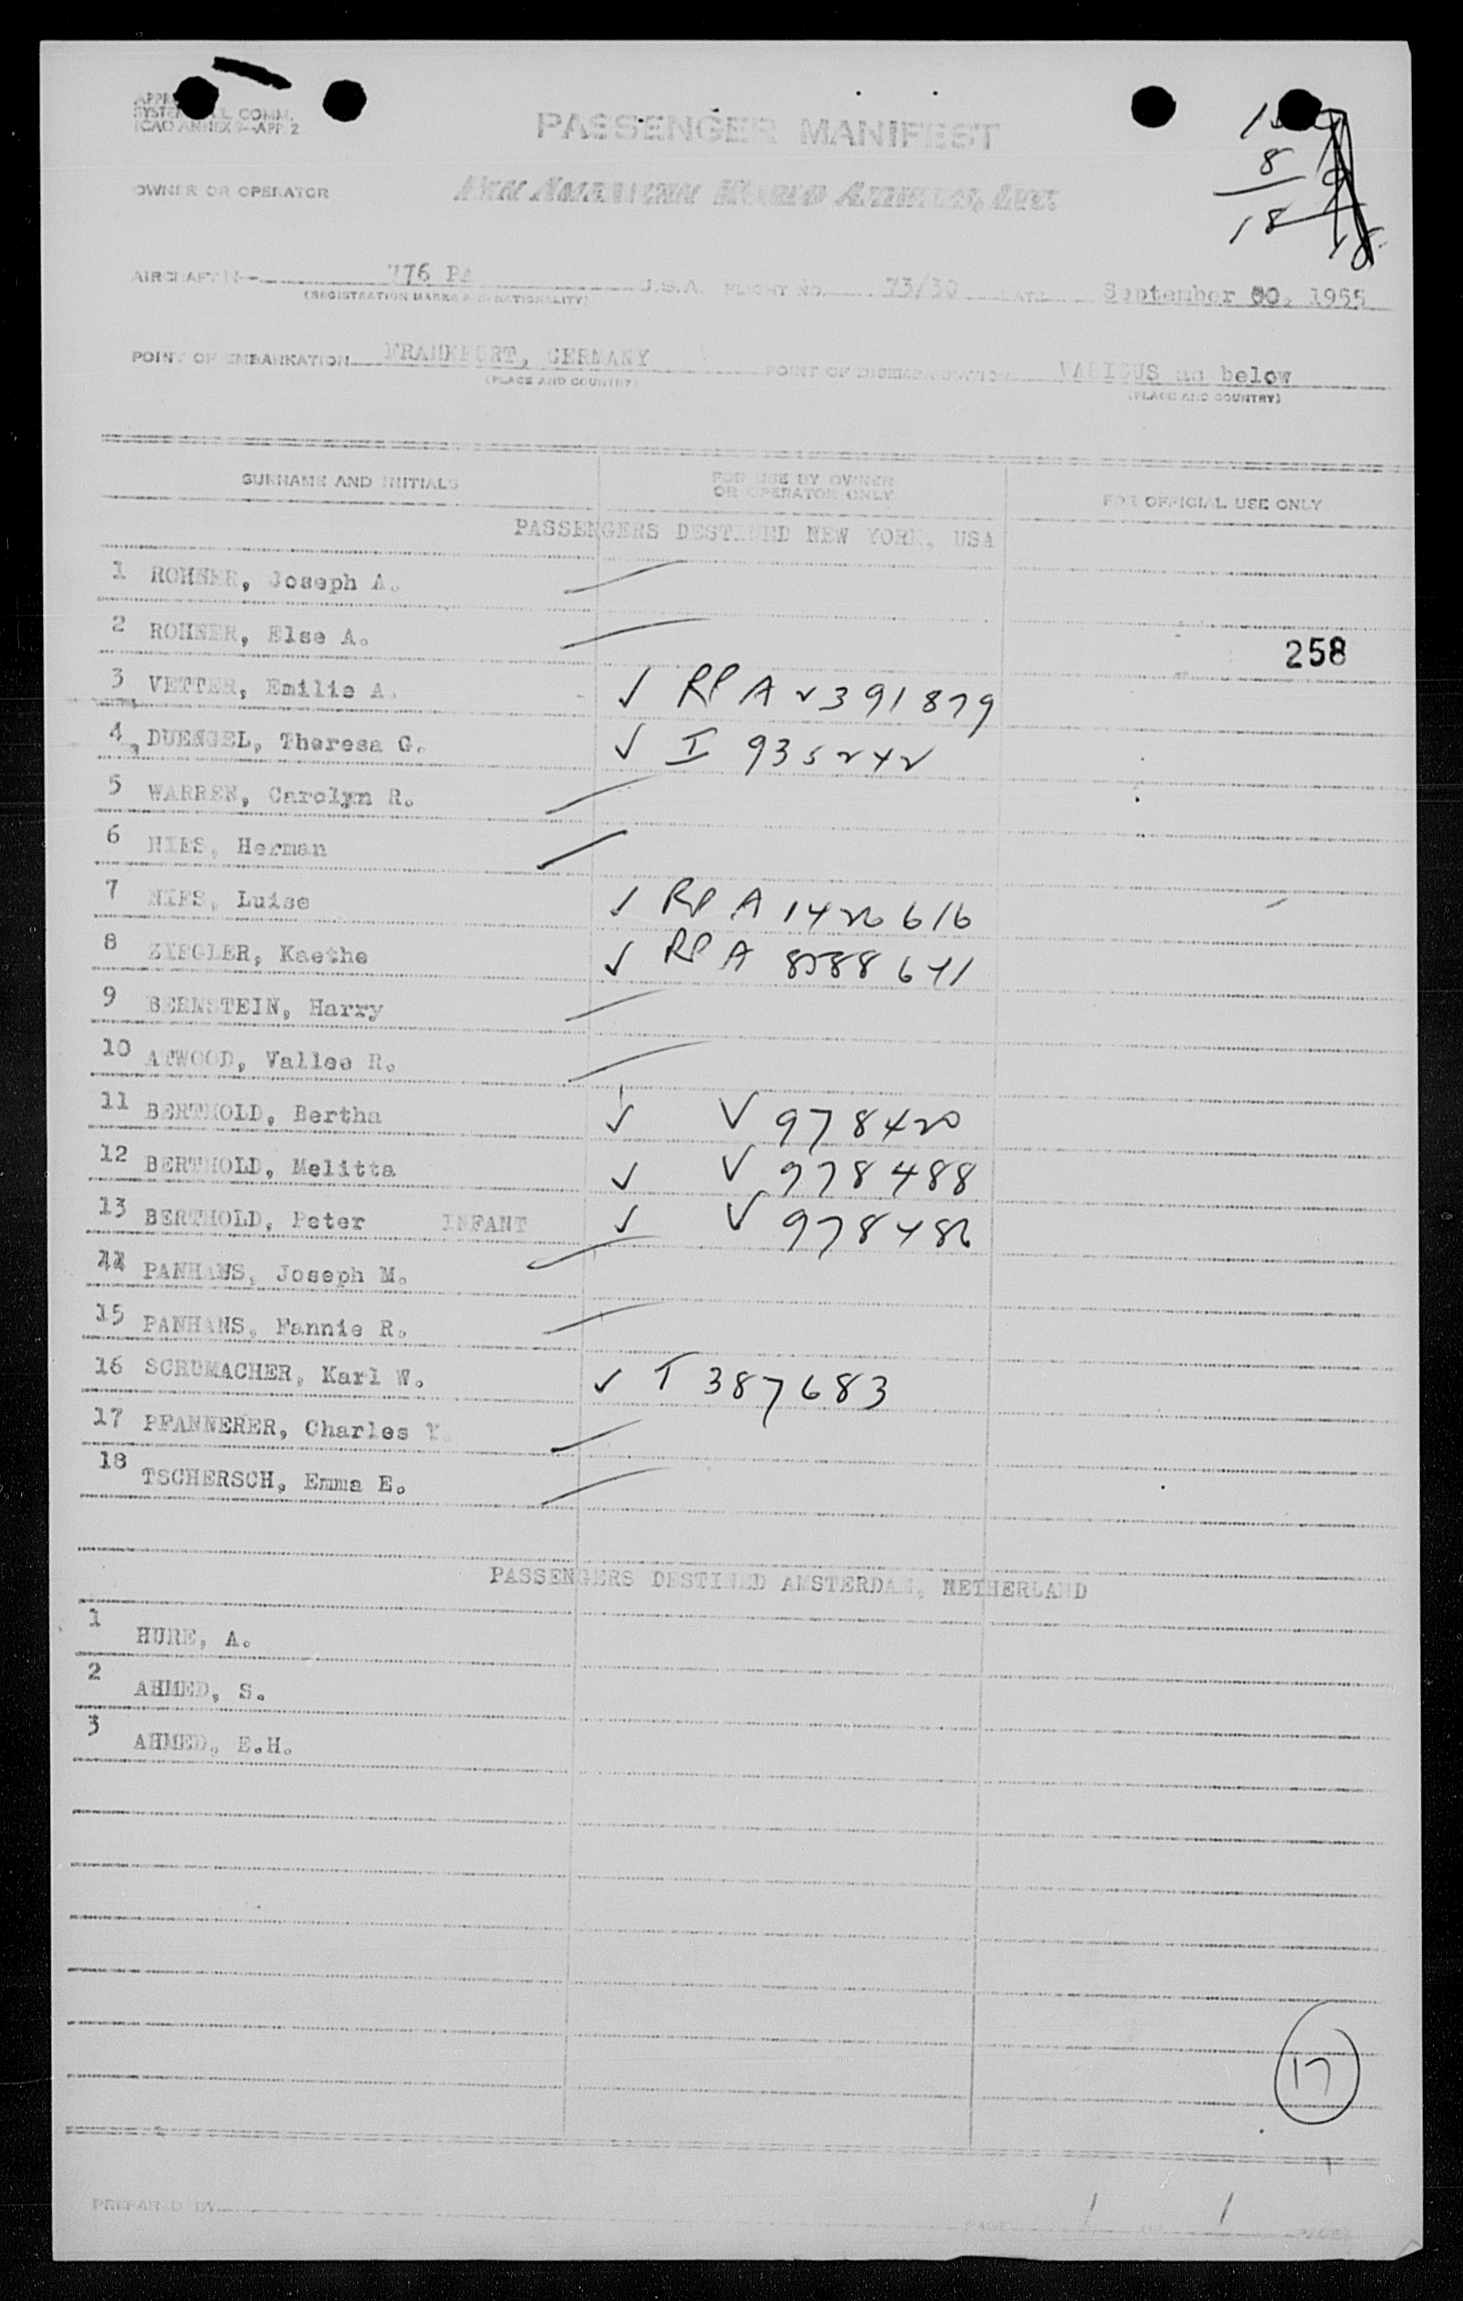 SYSTEM ALL COMM.
ICAO ANNEX 9-APP. 2
PASSENGER MANIFEST
OWNER OR OPERATOR PAN AMERICAN WORLD AIRWAYS, INC.
AIRCRAFT N- 776 PA U.S.A. FLIGHT NO. 73/30 DATE September 30, 1955
(REGISTRATION MARKS AND NATIONALITY)
POINT OF EMBARKATION FRANKFURT, GERMANY POINT OF DISEMBARKATION VARIOUS as below
(PLACE AND COUNTRY) (PLACE AND COUNTRY)
8
18 18
SURNAME AND INITIALS FOR USE BY OWNER OR OPERATOR ONLY FOR OFFICIAL USE ONLY
PASSENGERS DESTINED NEW YORK, USA
1 ROHNER, Joseph A.
2 ROHNER, Else A.
258
3 VETTER, Emilie A. ✓ RP A 2391879
4 DUENGEL, Theresa G. ✓ I 935242
5 WARREN, Carolyn R.
6 NIES, Herman
7 NIES, Luise ✓ RP A 1426616
8 ZIEGLER, Kaethe ✓ RP A
9 BERNSTEIN, Harry
10 ATWOOD, Vallee R.
11 BERTHOLD, Bertha ✓ V 978420
12 BERTHOLD, Melitta ✓ V 978488
13 BERTHOLD, Peter INFANT ✓ V 978486
14 PANHANS, Joseph M.
15 PANHANS, Fannie R.
16 SCHUMACHER, Karl W. ✓ T 387683
17 PFANNERER, Charles
18 TSCHERSCH, Emma E.
PASSENGERS DESTINED AMSTERDAM, NETHERLAND
1 HURE, A.
2 AHMED, S.
3 AHMED, E.H.
17
PREPARED BY PAGE 1 OF 1 PAGES